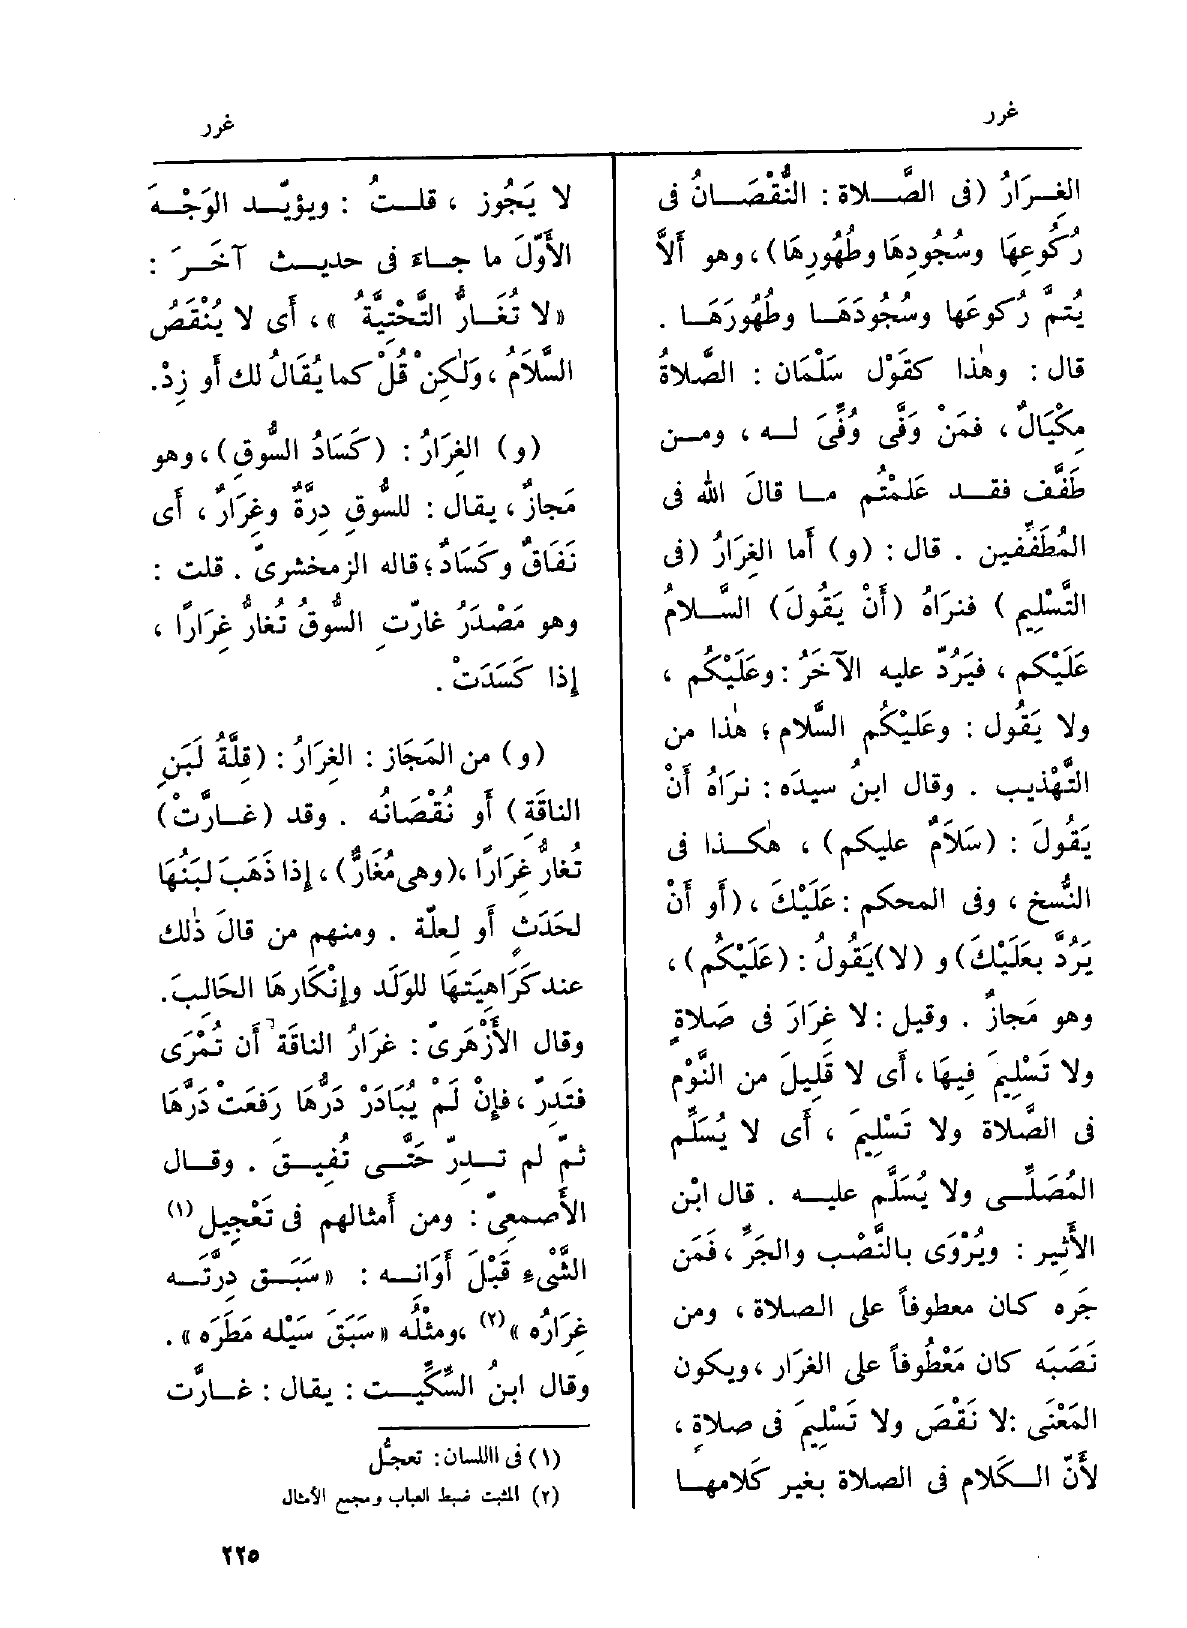 غرر
غرر
الغِرَارُ (فى الصَّلاة : النُّقْصَانُ فى
رُكُوعِهَا وسُجُودِها وطُهُورِها) ، وهو أَلاَّ
يُتمَّ رُكُوعَها وسُجُودَهَا وطُهُورَهَا .
قال : وهٰذا كقَوْل سَلْمَان : الصَّلاةُ
مِكْيَالٌ ، فمَنْ وَفَّى وُفِّىَ له ، ومن
طَفَّف فقد عَلمْتُم ما قالَ الله فى
المُطَفِّفين . قال : (و) أَما الغِرَارُ (فى
التَّسْلِيم) فنرَاهُ (أَنْ يَقُولَ) السَّلامُ
عَلَيْكم ، فيَرُدّ عليه الآخَرُ : وعَلَيْكُم ،
ولا يَقُول : وعَلَيْكُم السَّلام ؛ هٰذا من
التَّهْذيب . وقال ابنُ سيدَه : نرَاهُ أَنْ
يَقُولَ : (سَلاَمٌ عليكم) ، هٰكذا فى
النُّسخ ، وفى المحكم : عَلَيْكَ ، (أَو أَنْ
يَرُدَّ بعَلَيْكَ) و (لا) يَقُولُ : (عَلَيْكُم) ،
وهو مَجازٌ . وقيل : لا غِرَارَ فى صَلاةٍ
ولا تَسْلِيمَ فِيهَا ، أَى لا قَلِيلَ من النَّوْم
فى الصَّلاة ولا تَسْلِيمَ ، أَى لا يُسَلِّم
المُصَلِّى ولا يُسَلَّم عليه . قال ابْن
الأَثِير : ويُرْوَى بالنَّصْب والجَرّ ، فَمَن
جَره كان معطوفاً على الصلاة ، ومن
نَصَبَه كان مَعْطُوفاً على الغرَار ، ويكون
المَعْنَى : لا نَقْصَ ولا تَسْلِيمَ فى صلاةٍ ،
لأَنّ الكَلام فى الصلاة بغير كَلامها
لا يَجُوز ، قلتُ : ويؤيّد الوَجْهَ
الأَوّلَ ما جاءَ فى حديث آخَرَ :
«لا تُغَارُّ التَّحْتِيَّةُ » ، أَى لا يُنْقَصُ
السَّلاَمُ ، وَلٰكِنْ قُلْ كما يُقَالُ لك أَو زِدْ.
(و) الغِرَارُ : (كَسَادُ السُّوقِ) ، وهو
مَجازٌ ، يقال : للسُّوقِ دِرَّةٌ وغِرَارٌ ، أَى
نَفَاقٌ وكَسَادٌ ؛ قاله الزمخشرىّ . قلت :
وهو مَصْدَرُ غارّتِ السُّوقُ تُغارُّ غِرَارًا ،
إِذا كَسَدَتْ .
(و) من المَجَاز : الغِرَارُ : (قِلَّةُ لَبَنِ
الناقَةِ) أَو نُقْصَانُه . وقد (غارَّتْ)
تُغارُّ غِرَارًا ، (وهى مُغَارٌّ) ، إِذا ذَهَبَ لَبَنُهَا
لحَدَثٍ أَو لعِلّة . ومنهم من قالَ ذٰلك
عند كَرَاهِيَتهَا للوَلَد وإِنْكارهَا الحَالِبَ.
وقال الأَزْهَرىّ : غرَارُ الناقَة أَن تُمْرَى
فتَدِرّ ، فإِنْ لَمْ يُبَادَرْ دَرُّها رَفعَتْ دَرَّها
ثمّ لم تدِرّ حَتَّى تُفِيقَ . وقال
الأَصمعىّ : ومن أَمثالهم فى تَعْجِيل (١)
الشَّىْءِ قَبْلَ أَوَانِه : «سَبَق دِرَّتَه
غِرَارُه » (٢) ، ومثْلُه «سَبَقَ سَيْلَه مَطَرَه» .
وقال ابنُ السِّكِّيت : يقال : غارَّت
(١) فى االلسان : تعجُّل
(٢) المثبت ضبط العباب ومجمع الأمثال
٢٢٥